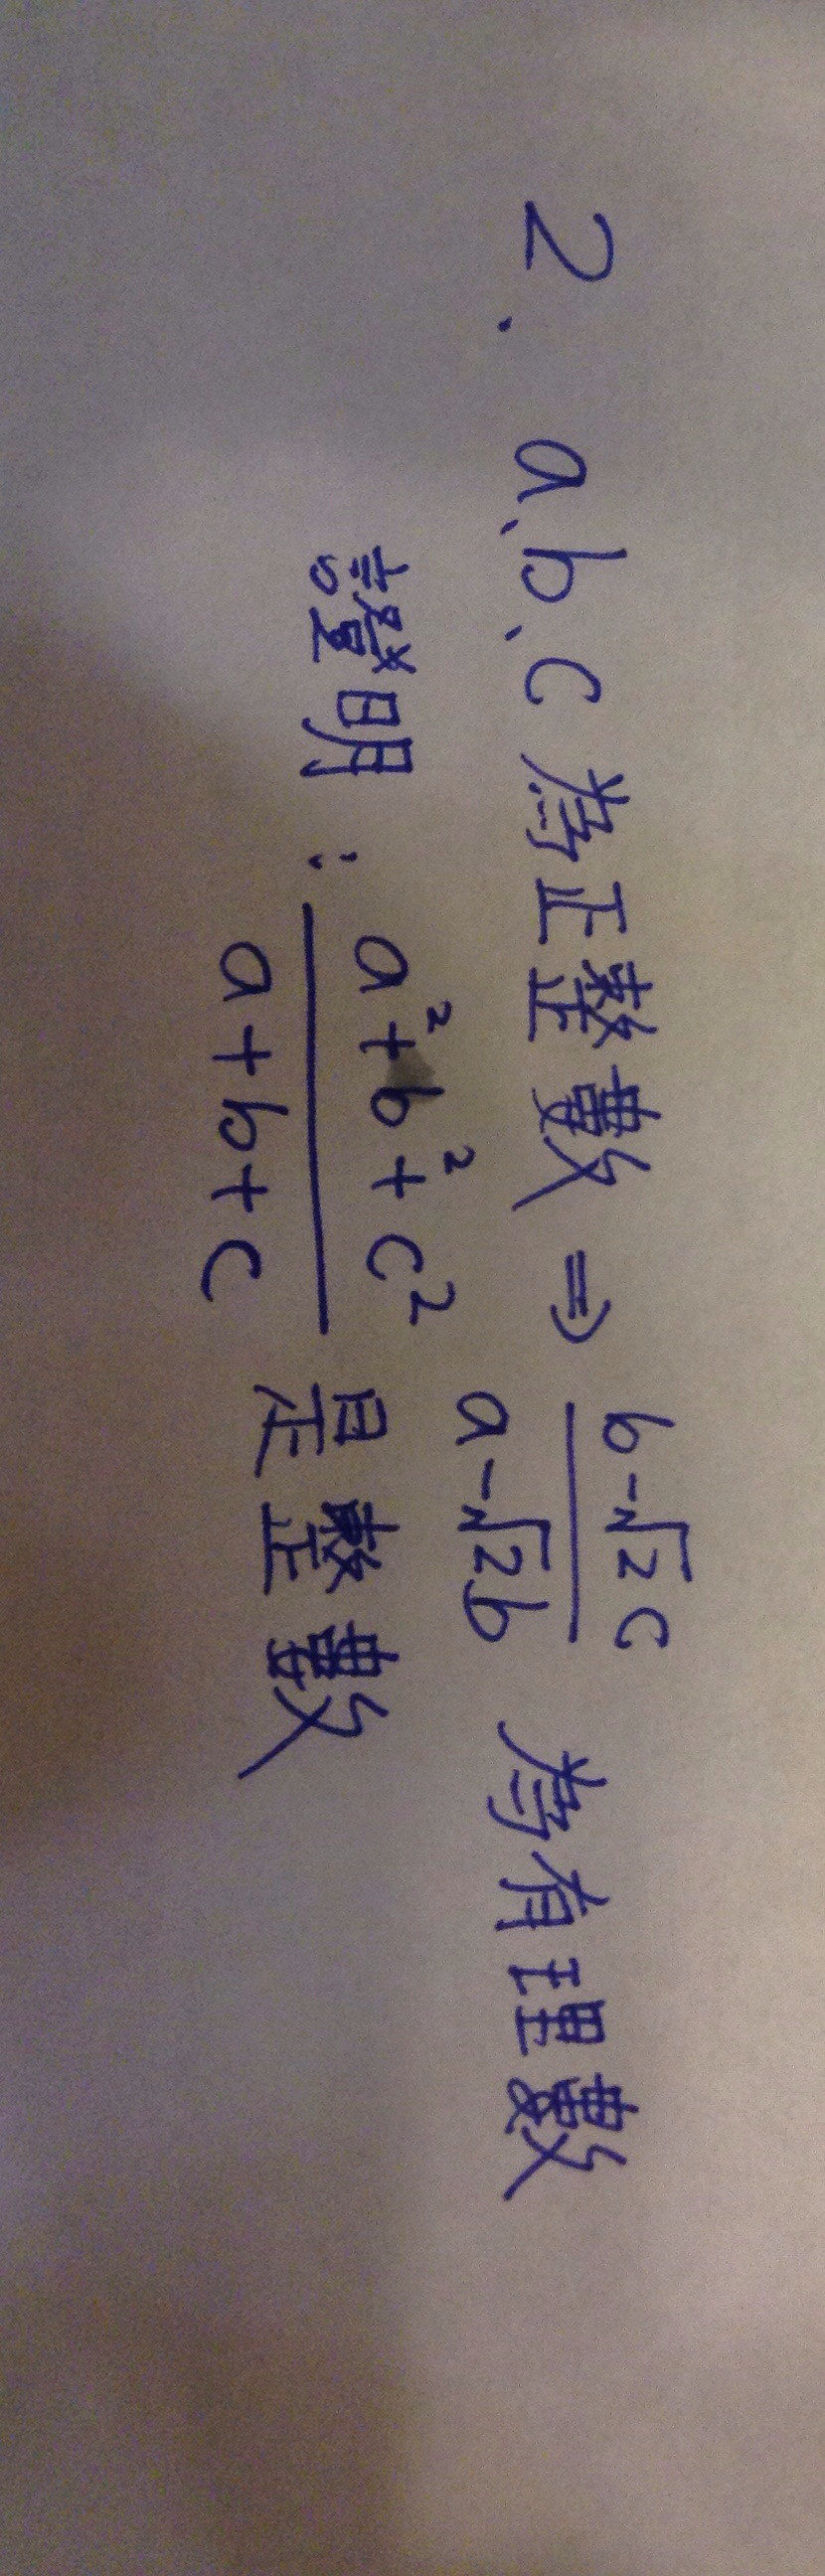 2. a、b、c 為正整數 ⇒ (b-√2c)/(a-√2b) 為有理數
證明: (a²+b²+c²)/(a+b+c) 是整數